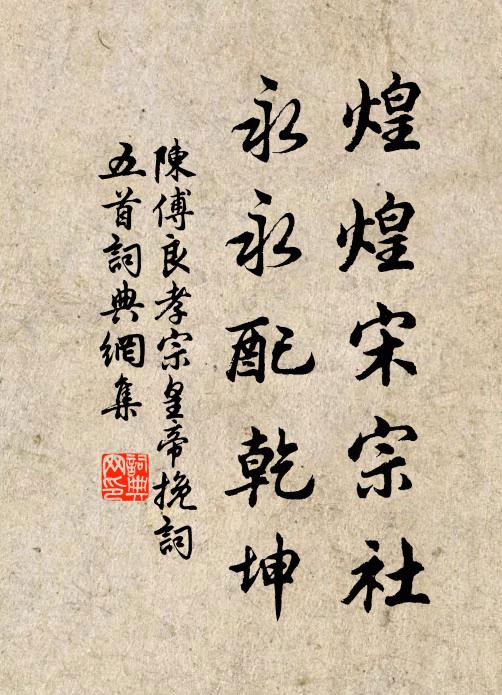 煌煌宋宗社
永永配乾坤
陳傅良孝宗皇帝挽詞
五首詞典網集
詞典
網印